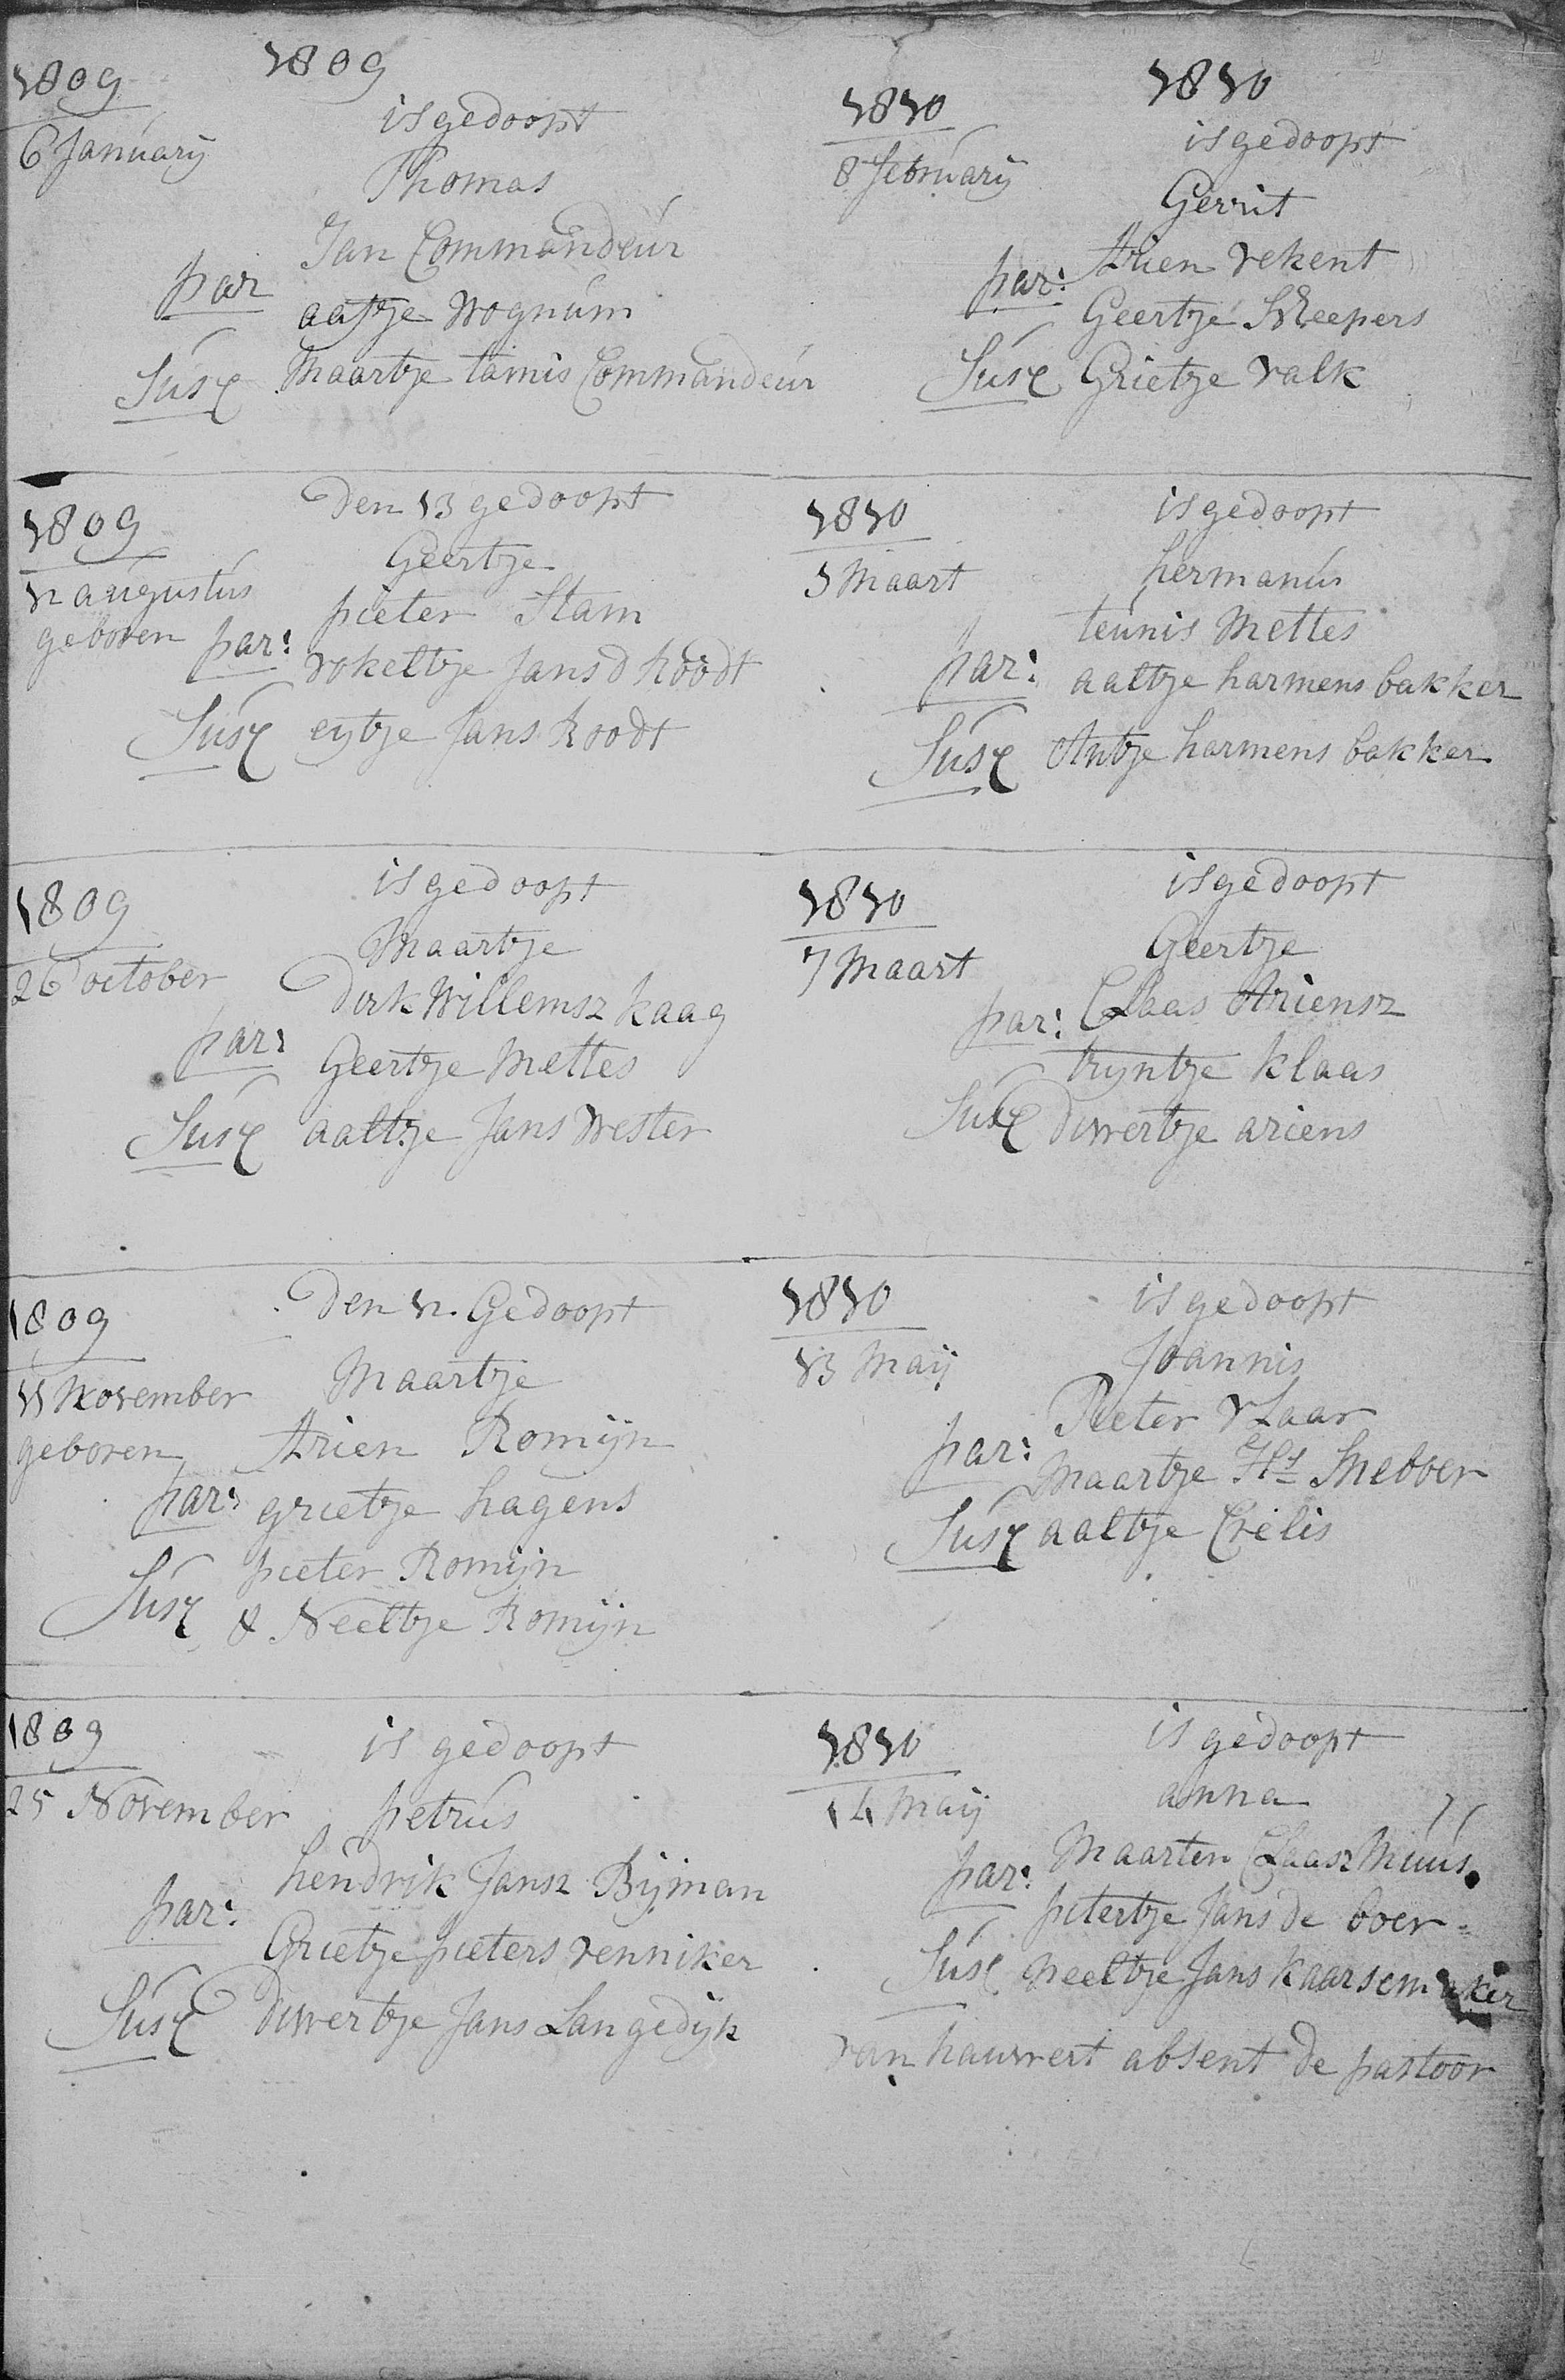 1809
1809
6 January
is gedoopt
Thomas
Jan Commandeur
par
aafje Wognum
Susc Maartje tamis Commandeur
1809
Den 13 gedoopt
12 augustus
geboren
Geertje
pieter Stam
par:
vokeltje Jans d Roodt
Susc eijtje Jans Roodt
1809
is gedoopt
26 october
Maartje
Dirk Willemsz kaag
par:
Geertje Mettes
Susc aaltje Jans Wester
1809
Den 12. Gedoopt
11 November
geboren
Maartje
Arien Romijn
par:
grietje hagens
pieter Romijn
Susc
& Neeltje Romijn
1809
is gedoopt
25 November
petrus
hendrik Jansz Bijman
par:
Grietje pieters venniker
Susc Diwertje Jans Langedijk
1810
1810
8 february
is gedoopt
Gerrit
Arien vekent
par:
Geertje Sleepers
Susc Grietje valk
1810
is gedoopt
5 Maart
hermanus
teunis Mettes
par:
aaltje harmens bakker
Susc Antje harmens bakker
1810
is gedoopt
7 Maart
Geertje
par: Claas Ariensz
tryntje klaas
Susc diwertje ariens
1810
is gedoopt
13 Maij
Joannis
Pieter vLaar
par:
Maartje Hs Snebber
Susc aaltje Crelis
1810
is gedoopt
14 Maij
anna
Maarten Claasz Muus.
par:
pitertje Jans de boer
Susc neeltje Jans kaarsemaker
van hauwert absent de pastoor